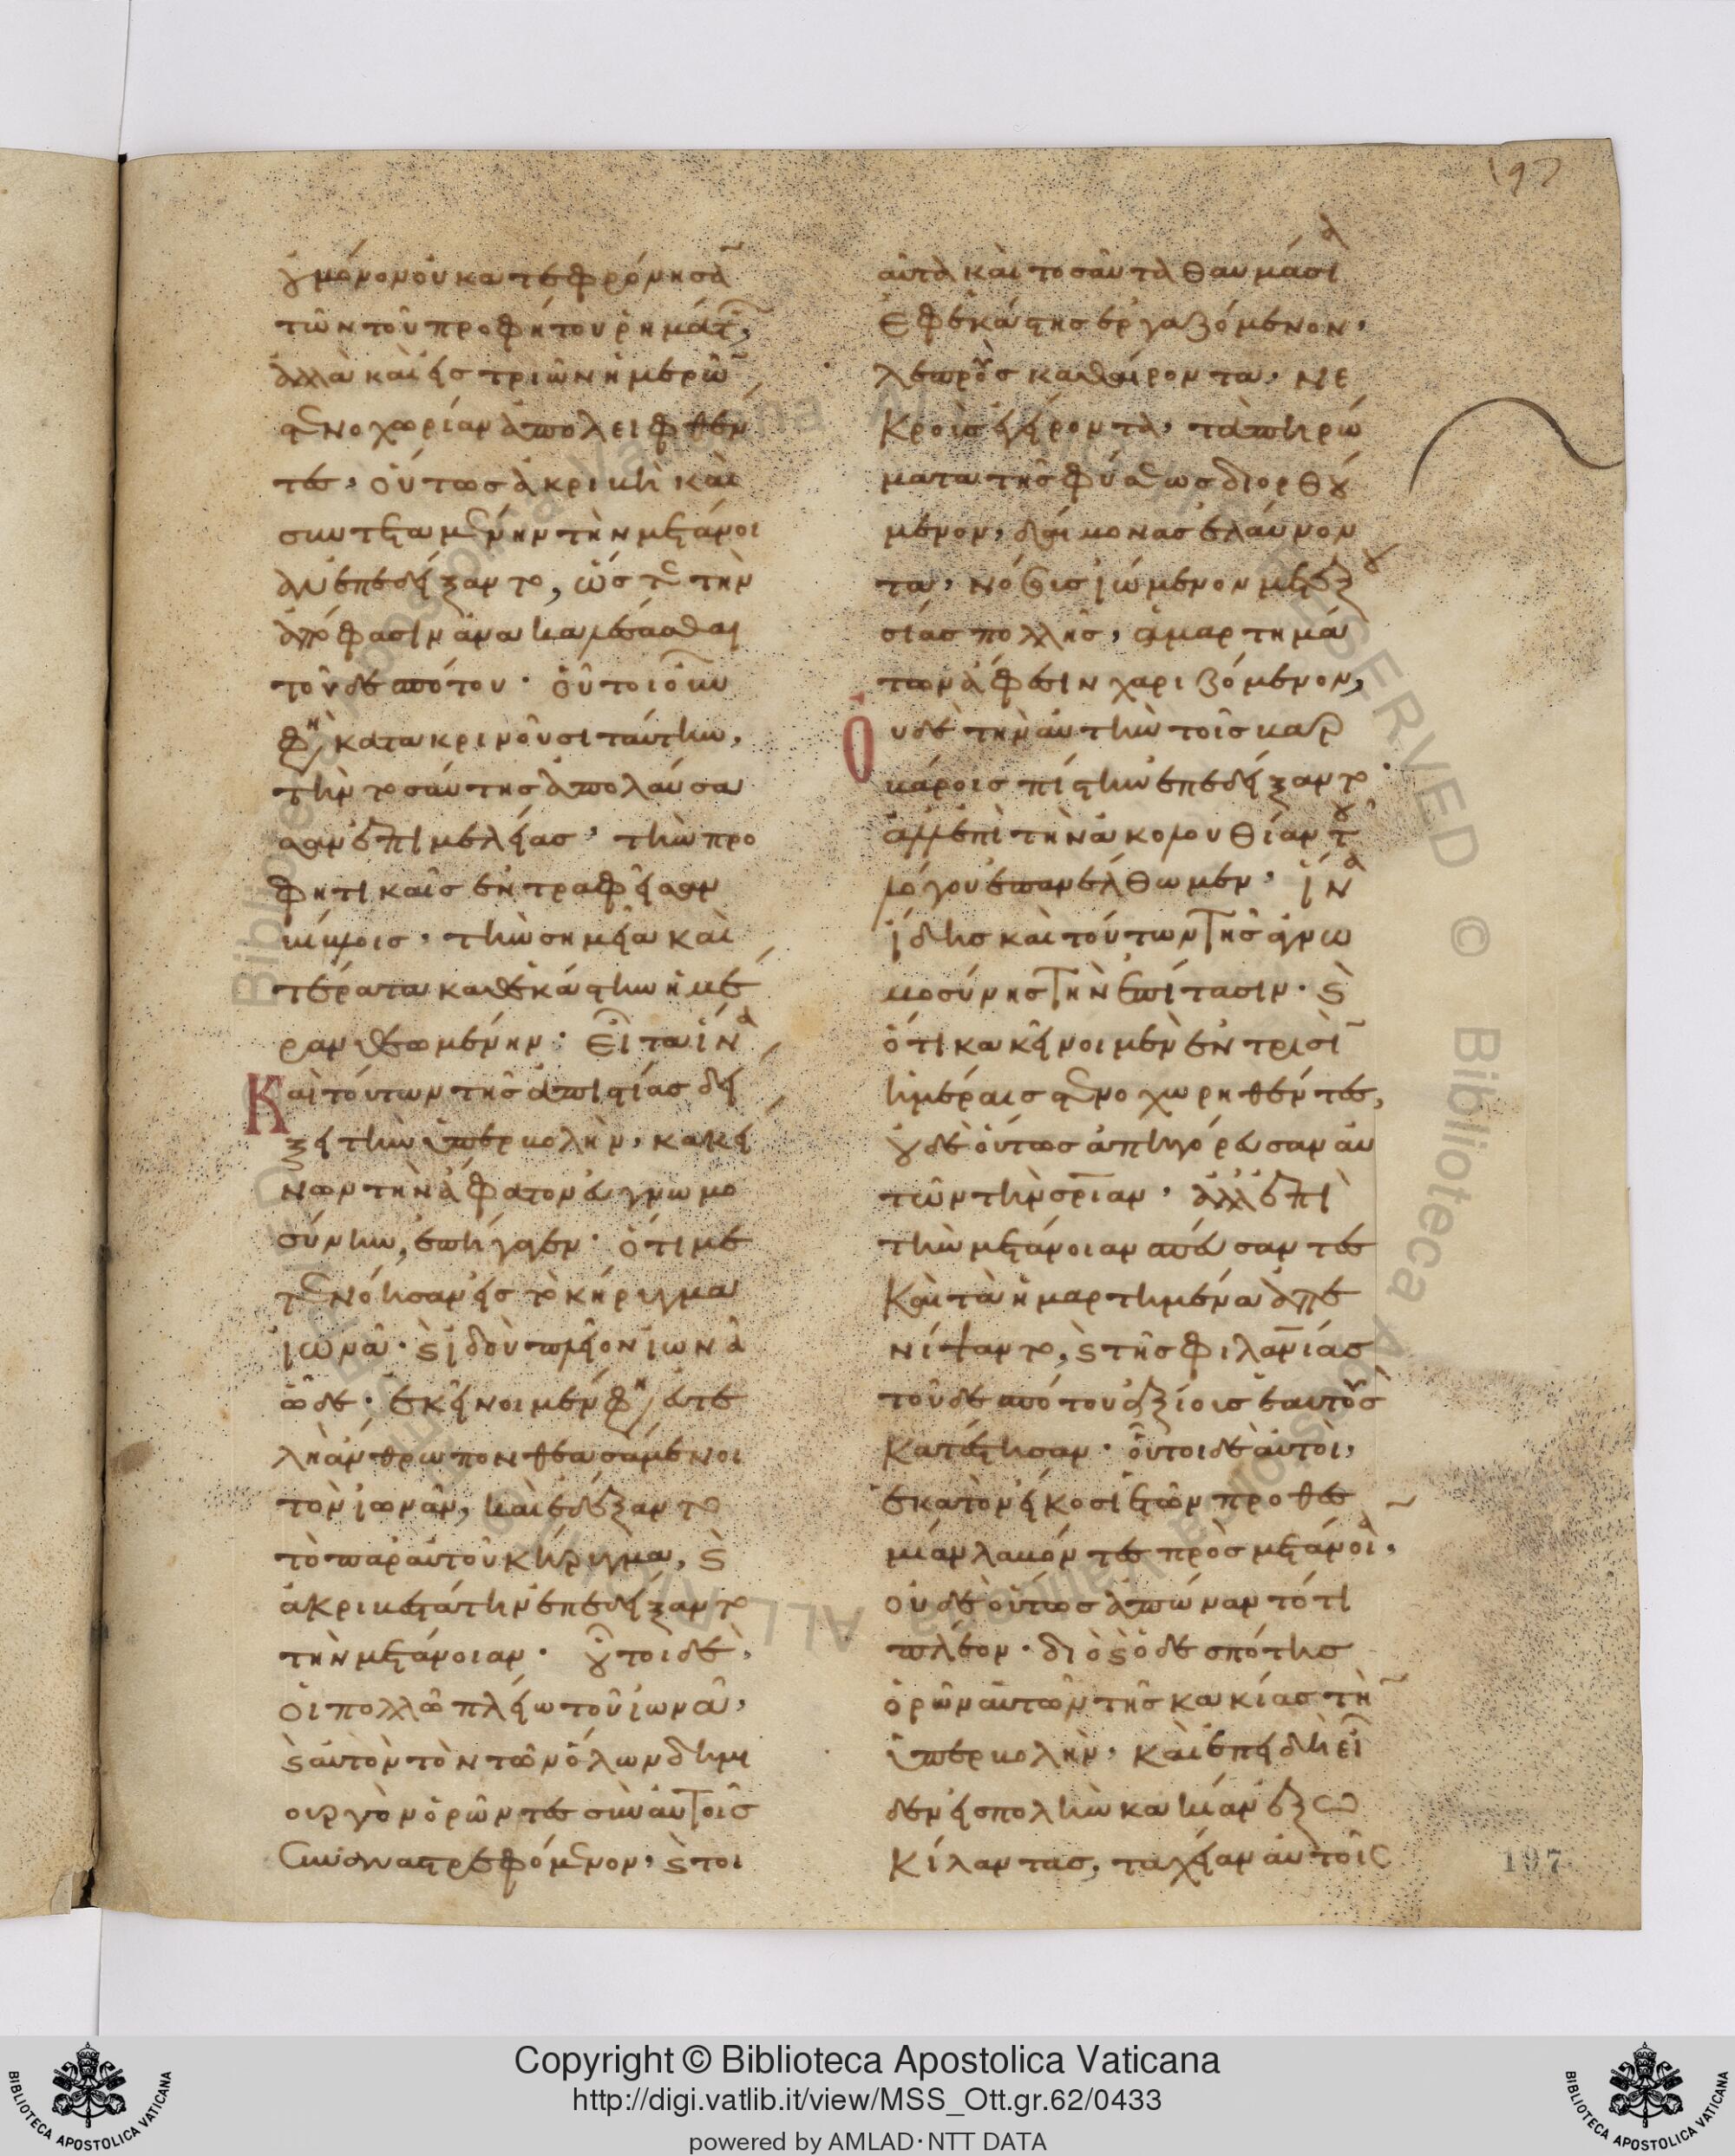 197
οὐ μόνον οὐ κατεφρόνησαν
τῶν τοῦ προφήτου ῥημάτων,
ἀλλὰ καὶ εἰς τριῶν ἡμερῶν
στενοχωρίαν ἀπολειφθέν
τες, οὕτως ἀκριβῆ καὶ
συντεταμένην τὴν μετάνοι
αν ἐπεδείξαντο, ὥστε τὴν
ἀπόφασιν ἀνακαλέσασθαι
τοῦ δεσπότου. οὗτοι οὖν
φη κατακρινοῦσι ταύτην,
τὴν τοσαύτης ἀπολαύσα
σαν ἐπιμελείας, τὴν προ
φητικαῖς ἐντραφεῖσαν
βίβλοις, τὴν σημεῖα καὶ
τέρατα καθεκάστην ἡμέ
ραν θεωμένην. Εἶτα ἵνα
Καὶ τούτων τῆς ἀπιστίας δεί
ξει τὴν ὑπερβολὴν, κακεί
νων τὴν ἄφατον εὐγνωμο
σύνην, ἐπήγαγεν. ὅτι με
τενόησαν εἰς τὸ κήρυγμα
ἰωνᾶ. καὶ ἰδοὺ πλεῖον ἰωνᾶ
ὧδε. ἐκεῖνοι μέν φη εὐτε
λῆ ἄνθρωπον θεασάμενοι
τὸν ἰωνᾶν, καὶ ἐδέξαντο
τὸ παρ αὐτοῦ κήρυγμα, καὶ
ἀκριβεστάτην ἐπεδείξαντο
τὴν μετάνοιαν. οὗτοι δὲ,
οἱ πολλῶ πλείω τοῦ ἰωνᾶ,
καὶ αὐτὸν τὸν τῶν ὅλων δημι
ουργὸν ὁρῶντες σὺν αὐτοῖς
συναναστρεφόμενον, καὶ τοι
αῦτα καὶ τοσαῦτα θαυμάσια
ἐφ ἑκάστης ἐργαζόμενον,
λεπροὺς καθαίροντα, νε
κροὺς ἐγείροντα, τὰ πηρώ
ματα τῆς φύσεως διορθού
μενον, δαίμονας ἐλαύνον
τα, νόσους ἰώμενον μετ ἐξου
σίας πολλῆς, ἁμαρτημά
των ἄφεσιν χαριζόμενον,
Οὐδὲ τὴν αὐτὴν τοῖς βαρ
βάροις πίστιν ἐπεδείξαντο.
ἀλλ ἐπὶ τὴν ἀκολουθίαν τοῦ
λόγου ἐπανέλθωμεν, ἵνα
ἴδης καὶ τούτων τῆς ἀγνω
μοσύνης τὴν ἐπίτασιν. καὶ
ὅτι κακεῖνοι μὲν ἐν τρισὶν
ἡμέραις στενοχωρηθέντες,
οὐδὲ οὕτως ἀπηγόρευσαν αὐ
τῶν τὴν σρίαν. ἀλλ ἐπὶ
τὴν μετάνοιαν σπεύσαντες
καὶ τὰ ἡμαρτημένα ἀπε
νίψαντο, καὶ τῆς φιλανίας
τοῦ δεσπότου ἀξίους ἑαυτοὺς
κατέστησαν. οὗτοι δὲ αὐτοὶ,
ἑκατὸν εἴκοσι ἐτῶν προθεσ
μίαν λαβόντες πρὸς μετάνοιαν,
οὐδὲ οὕτως ἀπώναντό τι
πλέον. διὸ καὶ ὁ δεσπότης
ὁρῶν αὐτῶν τῆς κακίας τὴν
ὑπερβολὴν, καὶ ἐπειδὴ εἶ
δεν εἰς πολλὴν κακίαν ἐξω
κίλαντας, ταχεῖαν αὐτοῖς
197
Copyright © Biblioteca Apostolica Vaticana
http://digi.vatlib.it/view/MSS_Ott.gr.62/0433
powered by AMLAD·NTT DATA
BIBLIOTECA APOSTOLICA VATICANA
BIBLIOTECA APOSTOLICA VATICANA